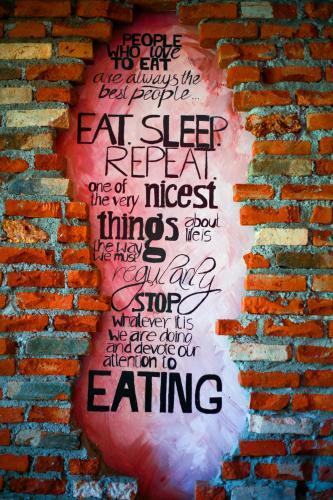 PEOPLE
WHO LOVE
TO EAT
are always the
best people...
EAT. SLEEP.
REPEAT.
one of
the very nicest
things about
life is
the way
we must
regularly
STOP
whatever it is
we are doing
and devote our
attention to
EATING